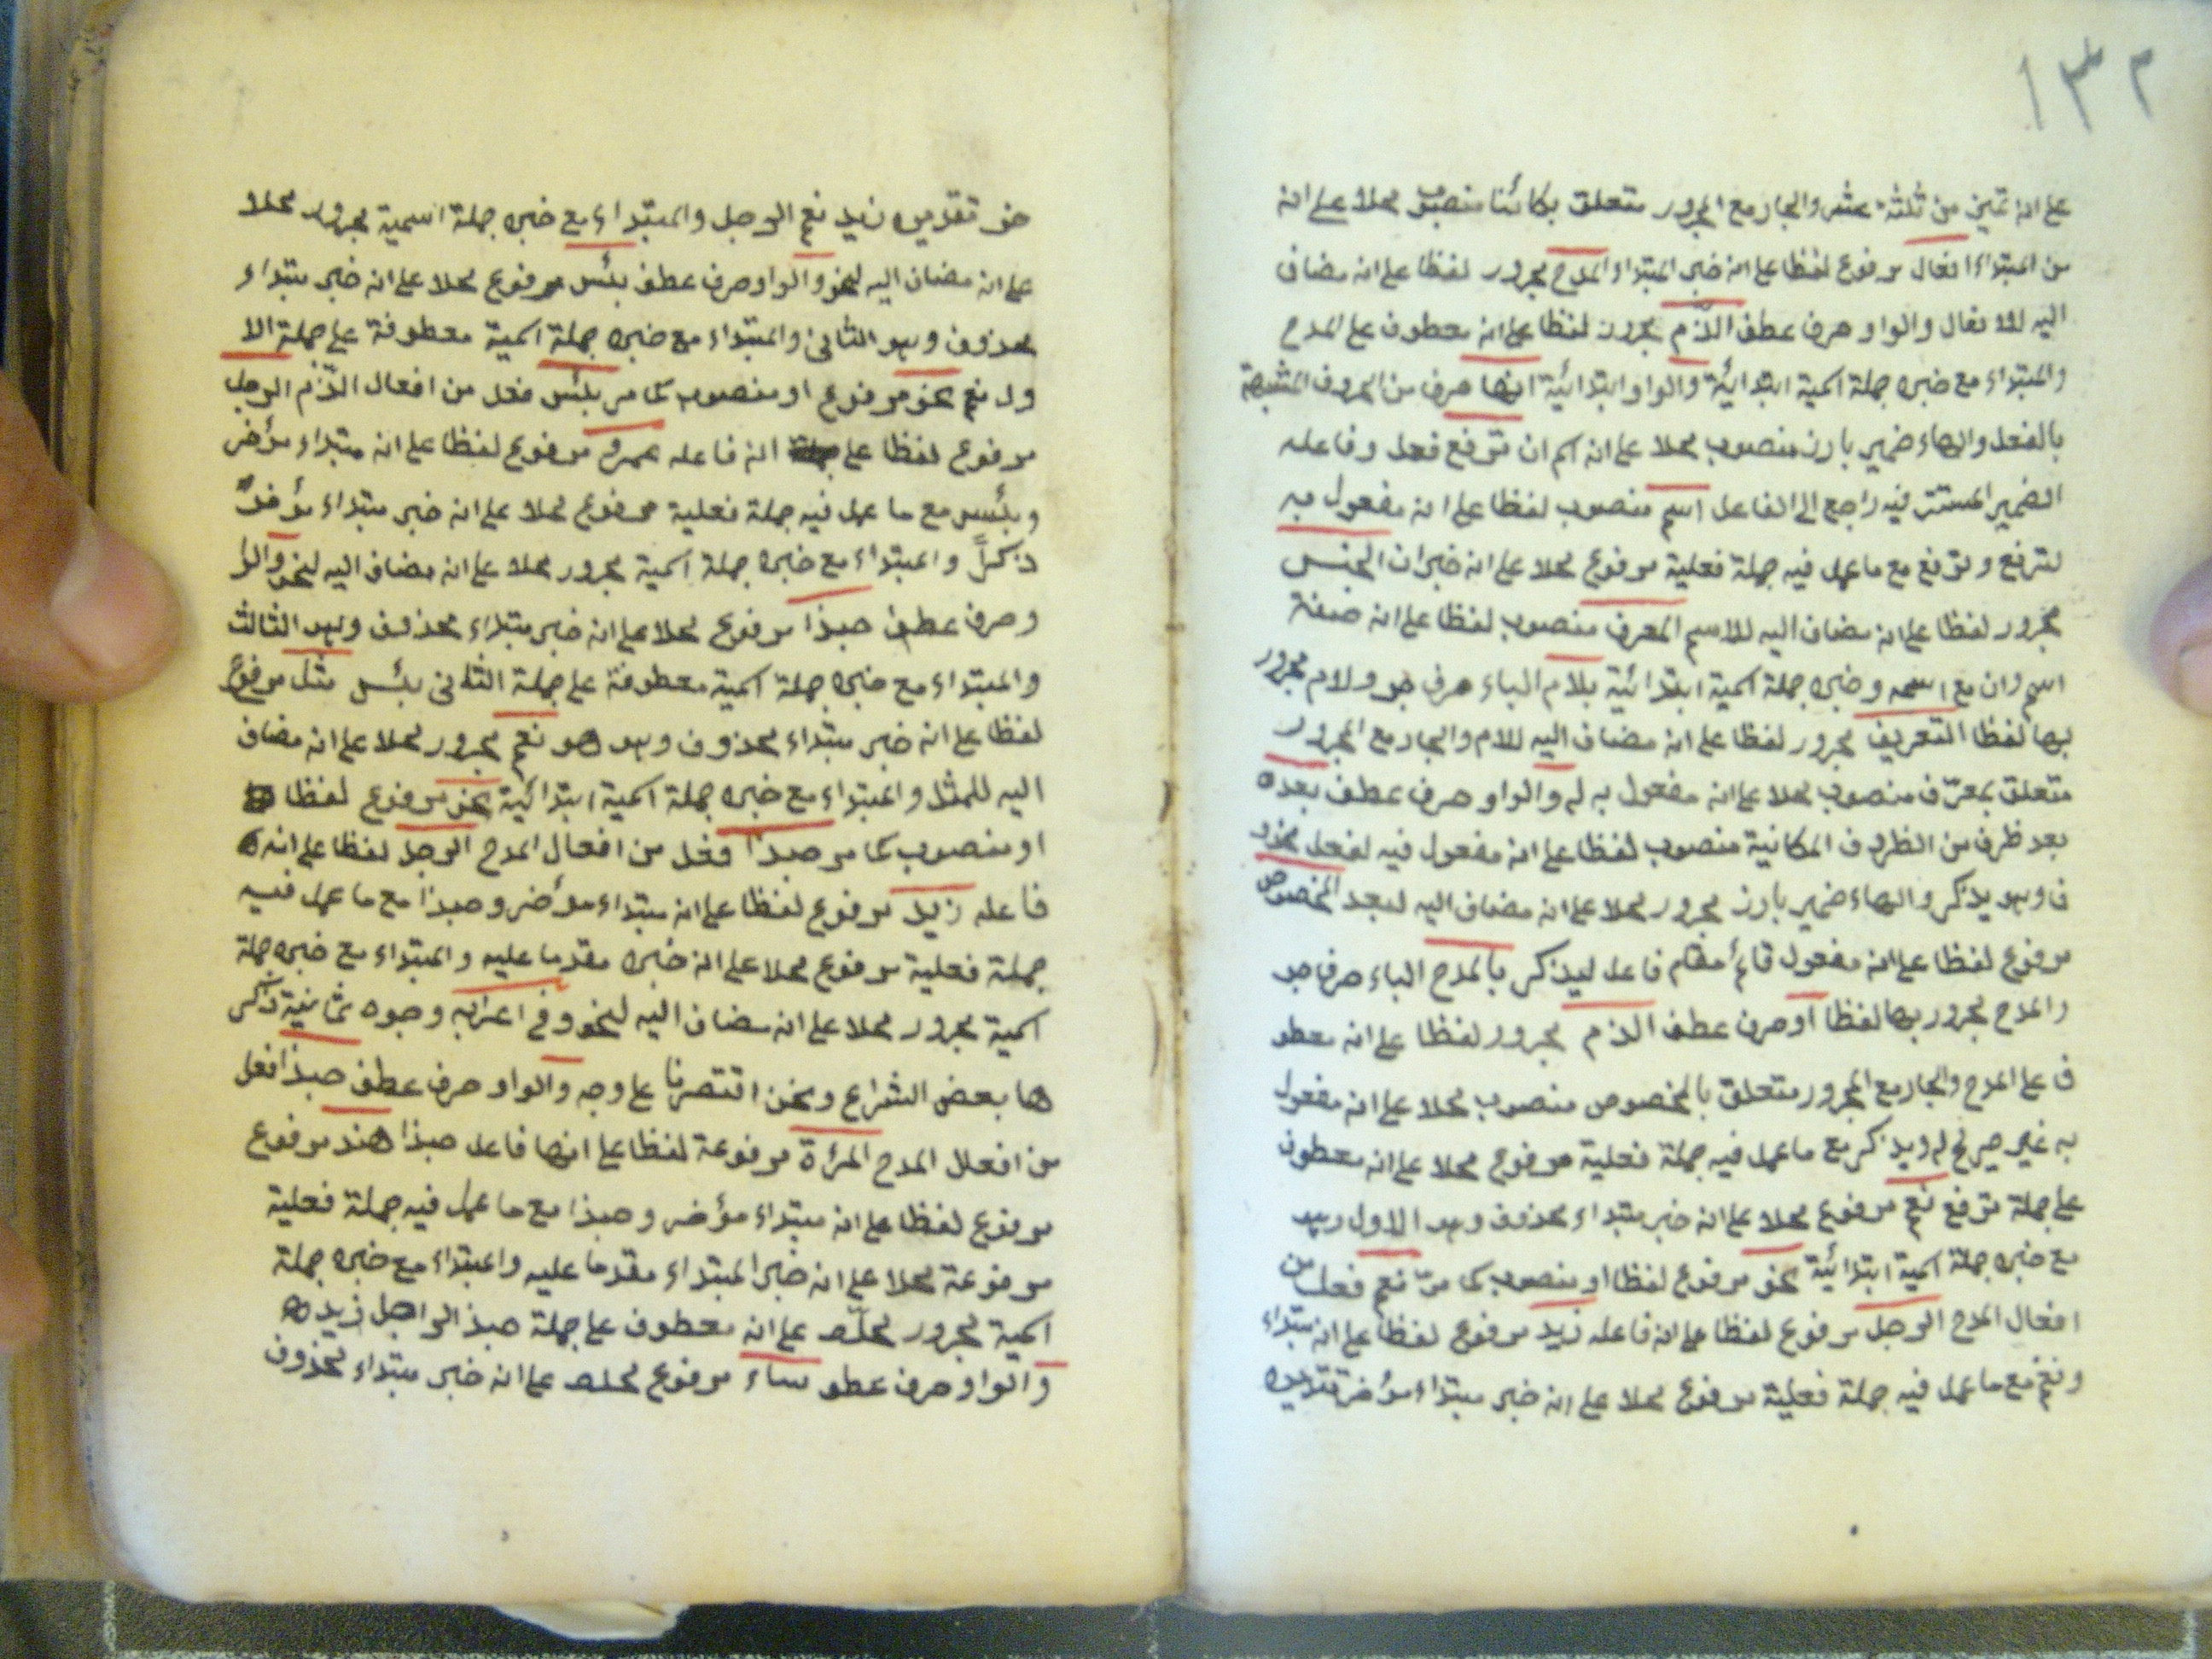 ١٣٢
على انه تمييز من ثلثة عشر والجار مع المجرور متعلق بكائنا منصوب محلا على انه
من المبتداء افعال مرفوع لفظا على انه خبر المبتداء المدح مجرور لفظا على انه مضاف
اليه لافعال والواو حرف عطف الذم مجرور لفظا على انه معطوف على المدح
والمبتداء مع خبره جملة اسمية ابتدائية والواو ابتدائية انها حرف من الحروف المشبهة
بالفعل والهاء ضمير بارز منصوب محلا على انه اسم ان ترفع فعل وفاعله
الضمير المستتر فيه راجع الى الفاعل اسم منصوب لفظا على انه مفعول به
لترفع وترفع مع ما عمل فيه جملة فعلية مرفوع محلا على انه خبر ان الجنس
مجرور لفظا على انه مضاف اليه للاسم المعرف منصوب لفظا على انه صفة
اسم وان مع اسمه وخبره جملة اسمية ابتدائية بلام الباء حرف جر ولام مجرور
بها لفظا التعريف مجرور لفظا على انه مضاف اليه للام والجار مع المجرور
متعلق بمعرّف منصوب محلا على انه مفعول به له والواو حرف عطف بعده
بعد ظرف من الظروف المكانية منصوب لفظا على انه مفعول فيه لفعل محذو
ف وهو يذكر والهاء ضمير بارز مجرور محلا على انه مضاف اليه لبعد المخصوص
مرفوع لفظا على انه مفعول قائم مقام فاعل ليذكر بالمدح الباء حرف جر
والمدح مجرور بها لفظا او حرف عطف الذم مجرور لفظا على انه معطو
ف على المدح والجار مع المجرور متعلق بالمخصوص منصوب محلا على انه مفعول
به غير صريح له ويذكر مع ما عمل فيه جملة فعلية مرفوع محلا على انه معطوف
على جملة ترفع نعم مرفوع محلا على انه خبر مبتداء محذوف وهو الاول وهو
مع خبره جملة اسمية ابتدائية نحو مرفوع لفظا او منصوب كما مرّ نعم فعل من
افعال المدح الرجل مرفوع لفظا على انه فاعله زيد مرفوع لفظا على انه مبتداء
ونعم مع ما عمل فيه جملة فعلية مرفوع محلا على انه خبر مبتداء مؤخر تقديره
خر تقديره زيد نعم الرجل والمبتداء مع خبره جملة اسمية مجرور محلا
على انه مضاف اليه لنحو والواو حرف عطف بئس مرفوع محلا على انه خبر مبتداء
محذوف وهو الثانى والمبتداء مع خبره جملة اسمية معطوفة على جملة الا
ول نعم نحو مرفوع او منصوب كما مر بئس فعل من افعال الذّم الرجل
مرفوع لفظا على انه فاعله عمرو مرفوع لفظا على انه مبتداء مؤخر
وبئس مع ما عمل فيه جملة فعلية مرفوع محلا على انه خبر مبتداء مؤخر
والمبتداء مع خبره جملة اسمية مجرور محلا على انه مضاف اليه لنحو والوا
وحرف عطف حبذا مرفوع محلا على انه خبر مبتداء محذوف وهو الثالث
والمبتداء مع خبره جملة اسمية معطوفة على جملة الثانى بئس مثل مرفوع
لفظا على انه خبر مبتداء محذوف وهو هو نعم مجرور محلا على انه مضاف
اليه للمثل والمبتداء مع خبره جملة اسمية ابتدائية نحو مرفوع لفظا
او منصوب كما مر حبذا فعل من افعال المدح الرجل لفظا على انه
فاعله زيد مرفوع لفظا على انه مبتداء مؤخر وحبذا مع ما عمل فيه
جملة فعلية مرفوع محلا على انه خبره مقدما عليه والمبتداء مع خبره جملة
اسمية مجرور محلا على انه مضاف اليه لنحو وفى اعرابه وجوه ثمانية ذكر
ها بعض الشراع ونحن اقتصرنا على وجه والواو حرف عطف حبذا فعل
من افعال المدح المرءة مرفوعة لفظا على انها فاعل حبذا هند مرفوع
مرفوع لفظا على انه مبتداء مؤخر وحبذا مع ما عمل فيه جملة فعلية
مرفوعة محلا على انه خبر المبتداء مقدما عليه والمبتداء مع خبره جملة
اسمية مجرور محلا على انه معطوف على جملة حبذ الراجل زيد
والواو حرف عطو ساء مرفوع محلا على انه خبر مبتداء محذوف